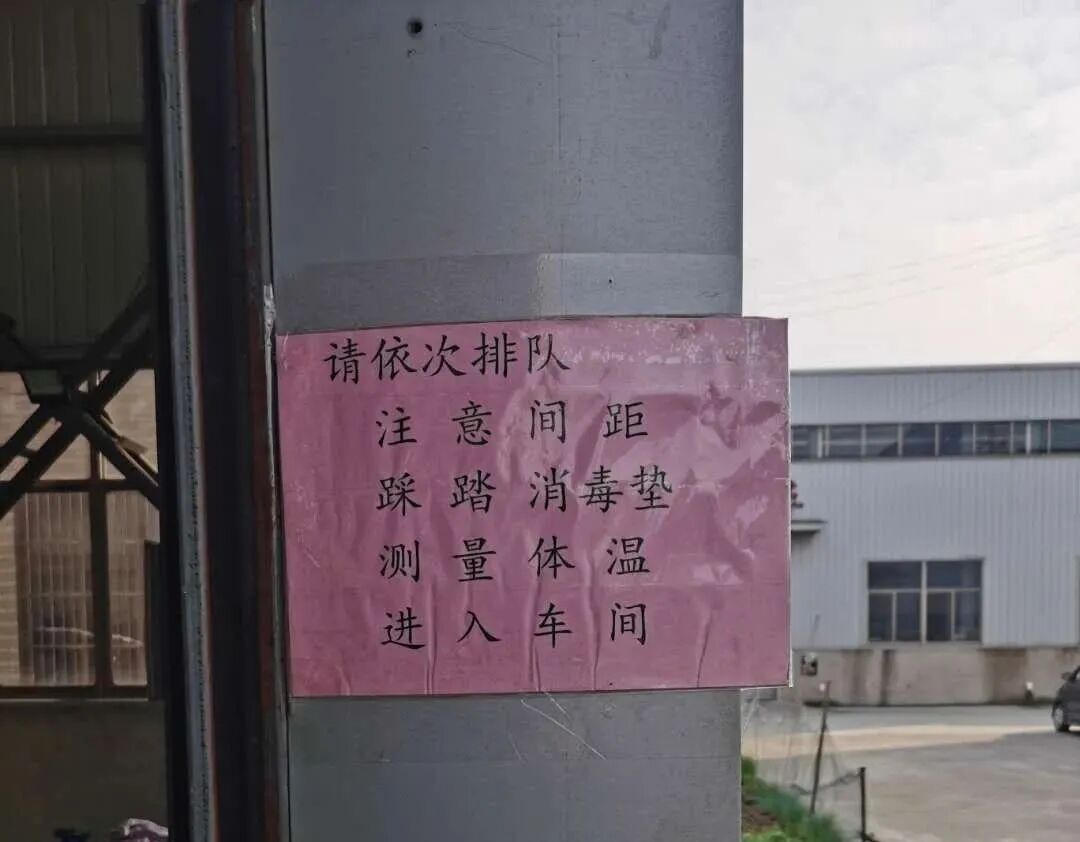 请依次排队
注意间距
踩踏消毒垫
测量体温
进入车间